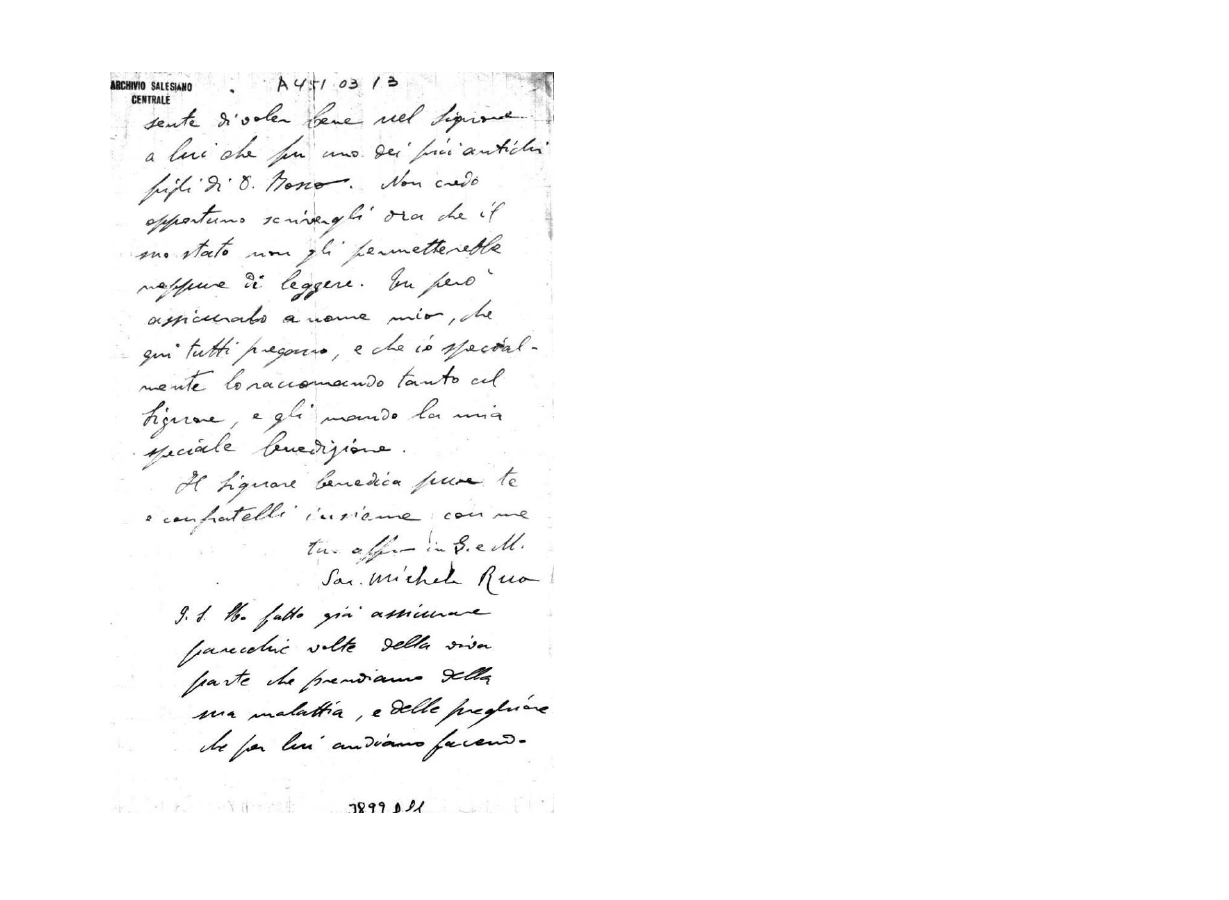 ARCHIVIO SALESIANO
CENTRALE
A 451 03 13
sente di voler bene nel Signore
a lui che fu uno dei più antichi
figli di D. Bosco. Non credo
opportuno scrivergli ora che il
suo stato non gli permetterebbe
neppure di leggere. Tu però
assicuralo a nome mio, che
qui tutti pregano, e che io special-
mente lo raccomando tanto al
Signore, e gli mando la mia
speciale benedizione.
Il Signore benedica pure te
e confratelli insieme con me
tuo affmo in G. e M.
Sac. Michele Rua
P. S. Ho fatto già assicurare
parecchie volte della viva
parte che prendiamo della
sua malattia, e delle preghiere
che per lui andiamo facendo